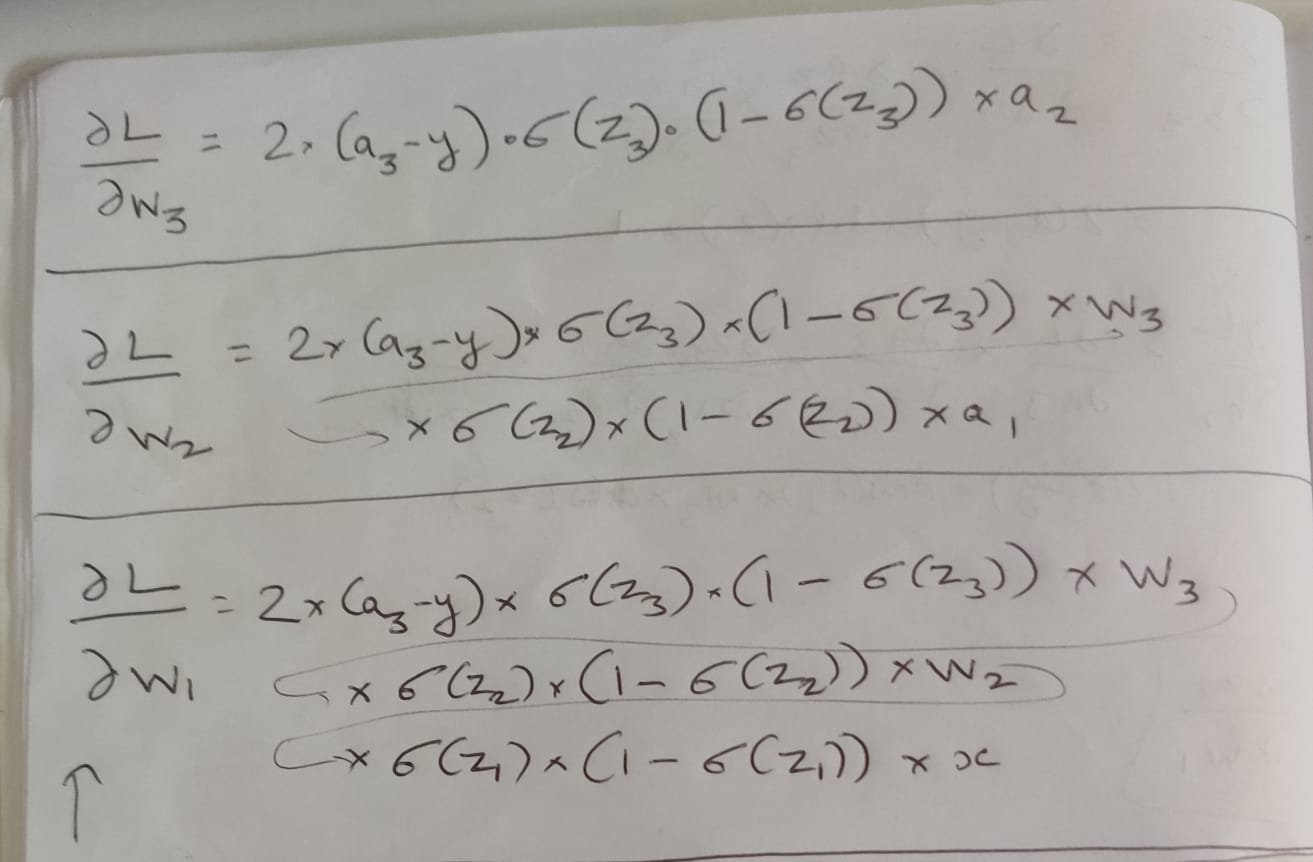 ∂L/∂W₃ = 2 × (a₃-y) • σ(z₃) • (1 - σ(z₃)) × a₂
∂L/∂W₂ = 2 × (a₃-y) × σ(z₃) × (1 - σ(z₃)) × W₃
× σ(z₂) × (1 - σ(z₂)) × a₁
∂L/∂W₁ = 2 × (a₃-y) × σ(z₃) × (1 - σ(z₃)) × W₃
× σ(z₂) × (1 - σ(z₂)) × W₂
× σ(z₁) × (1 - σ(z₁)) × x
↑